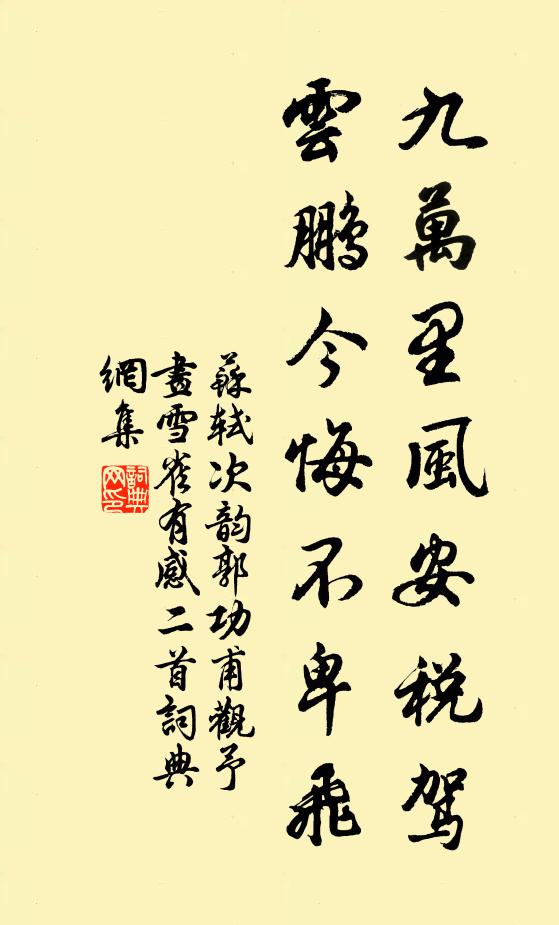 九萬里風安稅駕
雲鵬今悔不卑飛
蘇軾次韵郭功甫觀予
畫雪雀有感二首詞典
網集
詞典
网印